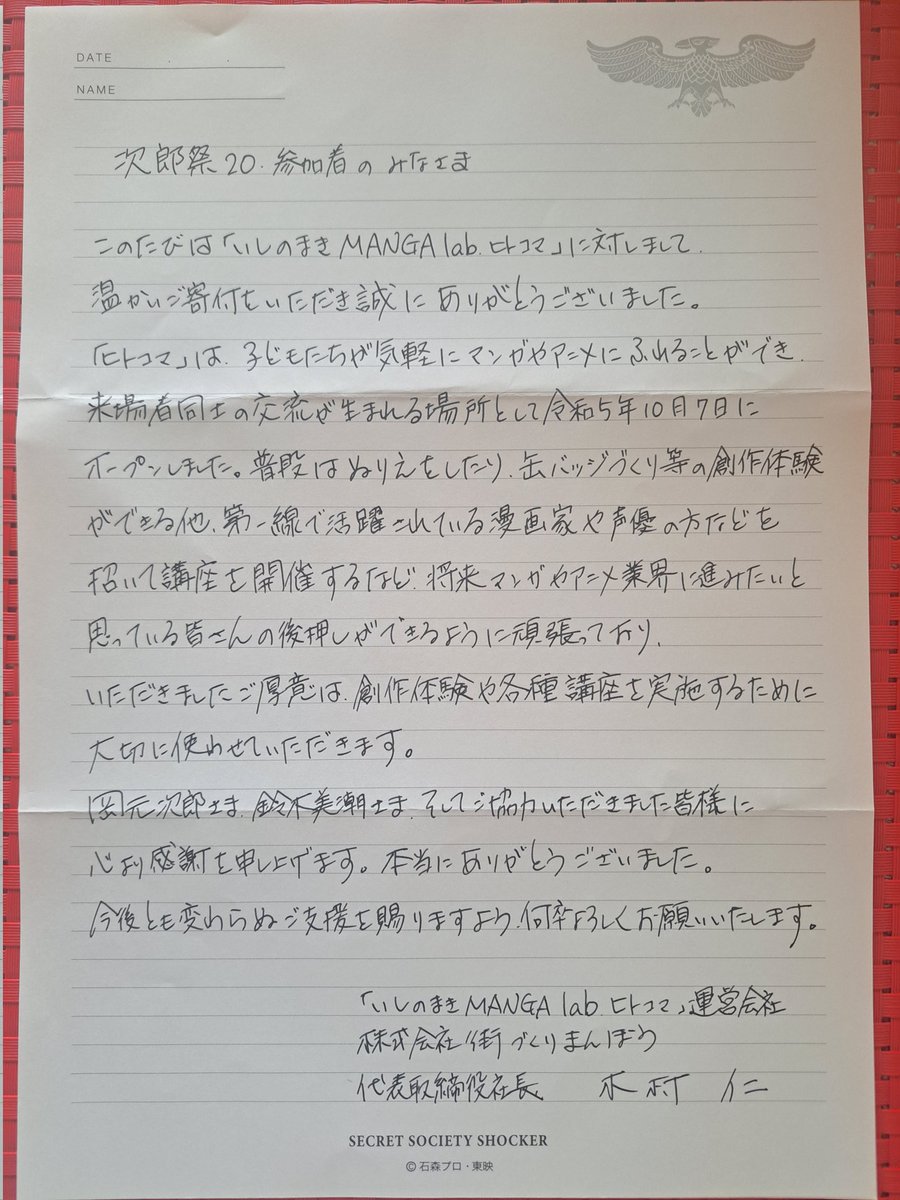 DATE . .
NAME
次郎祭20.参加者のみなさま
このたびは「いしのまきMANGA lab.ヒトコマ」に対しまして、
温かいご寄付をいただき誠にありがとうございました。
「ヒトコマ」は、子どもたちが気軽にマンガやアニメにふれることができ、
来場者同士の交流が生まれる場所として令和5年10月7日に
オープンしました。普段はぬりえをしたり、缶バッジづくり等の創作体験
ができる他、第一線で活躍されている漫画家や声優の方などを
招いて講座を開催するなど、将来マンガやアニメ業界に進みたいと
思っている皆さんの後押しができるように頑張っており、
いただきましたご厚意は、創作体験や各種講座を実施するために
大切に使わせていただきます。
岡元次郎さま、鈴木美潮さま、そしてご協力いただきました皆様に
心より感謝を申し上げます。本当にありがとうございました。
今後とも変わらぬご支援を賜りますよう、何卒よろしくお願いいたします。
「いしのまきMANGA lab.ヒトコマ」運営会社
株式会社街づくりまんぼう
代表取締役社長 木村 仁
SECRET SOCIETY SHOCKER
© 石森プロ・東映